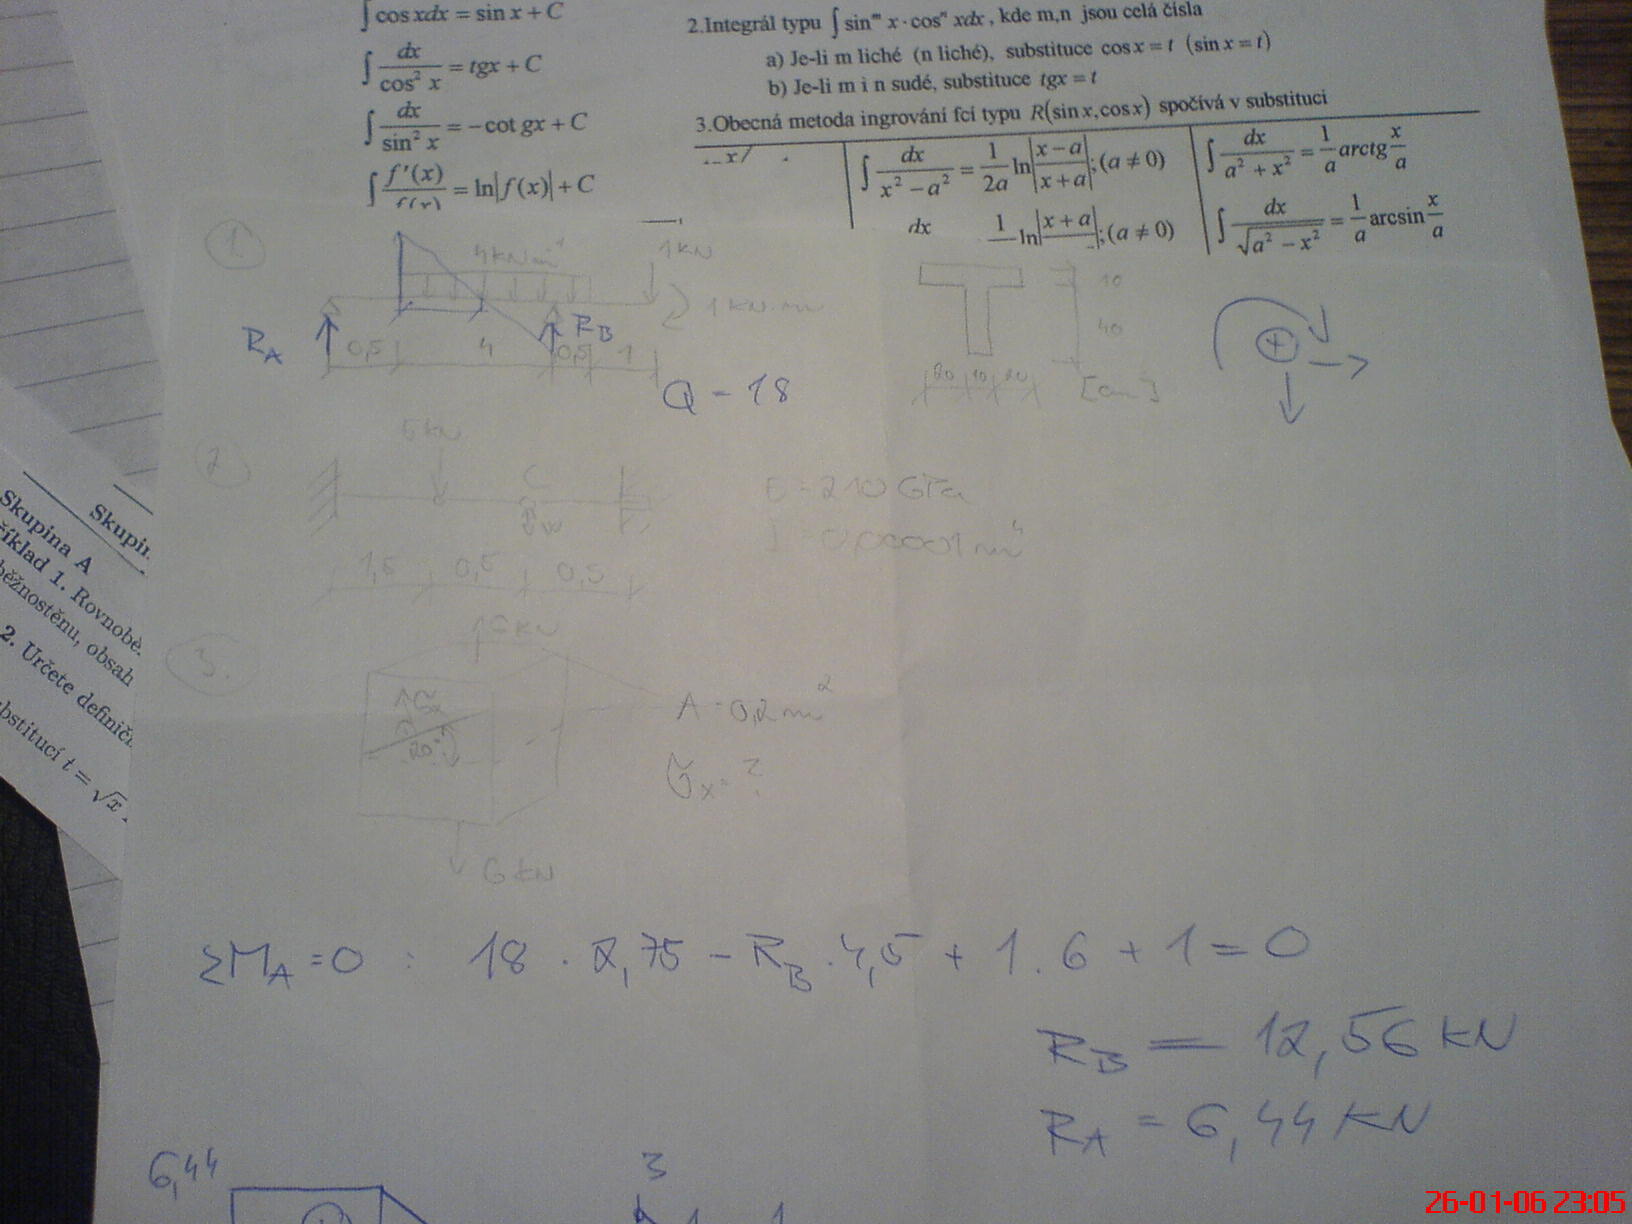 ∫ cos xdx = sin x + C
∫ dx / cos² x = tgx + C
∫ dx / sin² x = -cot gx + C
∫ f'(x) / f(x) = ln|f(x)| + C
2.Integrál typu ∫ sinᵐ x · cosⁿ xdx , kde m,n jsou celá čísla
a) Je-li m liché (n liché), substituce cos x = t (sin x = t)
b) Je-li m i n sudé, substituce tgx = t
3.Obecná metoda ingrování fcí typu R(sin x, cos x) spočívá v substituci
∫ dx / x² - a² = 1/2a ln|x - a / x + a|; (a ≠ 0)
∫ dx / a² + x² = 1/a arctg x/a
dx 1 ln|x + a|; (a ≠ 0)
∫ dx / √a² - x² = 1/a arcsin x/a
1.
4kNm⁻¹
1 kN
1 kN.m
R_A
R_B
0,5 4 0,5 1
Q = 18
10
40
20 10 20
[cm]
+
2
5 kN
C
w
E = 210 GPa
J = 0,00001 m⁴
1,5 0,5 0,5
3.
6 kN
σx
20°
A = 0,2 m²
σx = ?
6 kN
Skupin
Skupina A
říklad 1. Rovnobě
běžnostěnu, obsah
2. Určete definičn
bstitucí t = √x.
ΣM_A = 0 : 18 . 2,75 - R_B . 4,5 + 1 . 6 + 1 = 0
R_B = 12,56 kN
R_A = 6,44 kN
6,44
3
26-01-06 23:05